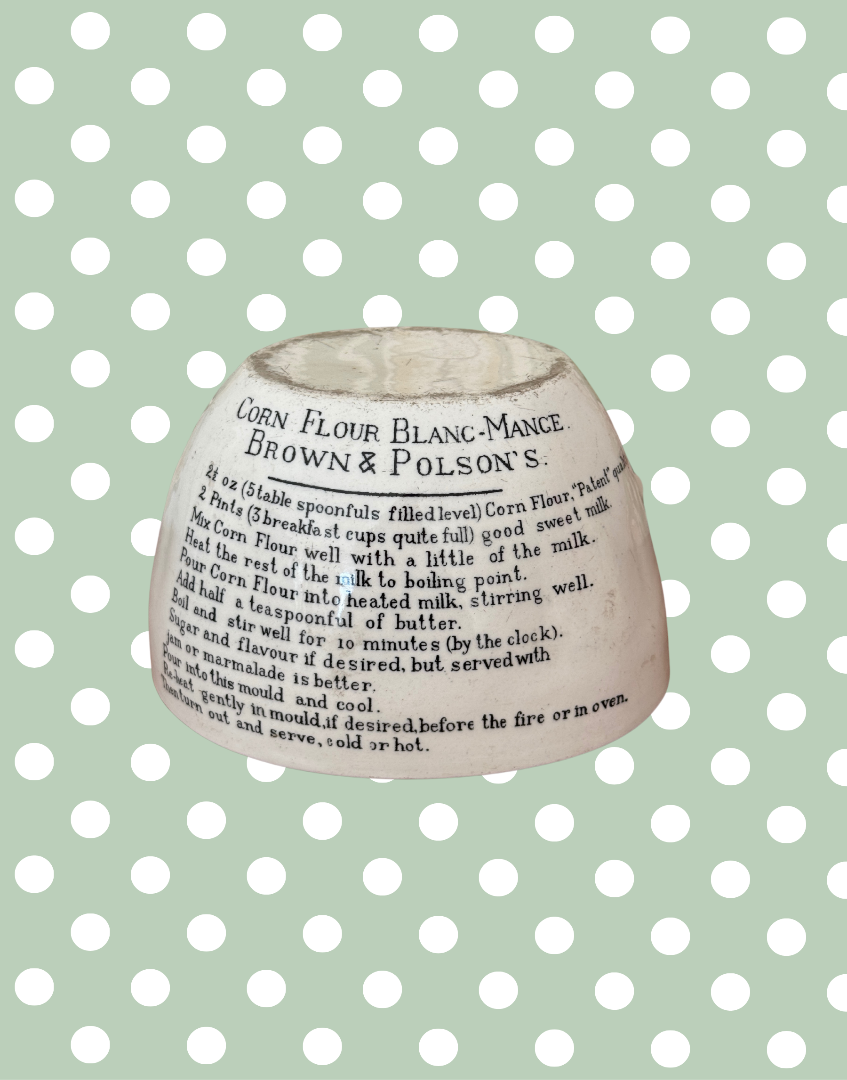 CORN FLOUR BLANC-MANCE.
BROWN & POLSON'S.
2½ oz (5 table spoonfuls filled level) Corn Flour, "Patent"
2 Pints (3 breakfast cups quite full) good sweet milk.
Mix Corn Flour well with a little of the milk.
Heat the rest of the milk to boiling point.
Pour Corn Flour into heated milk, stirring well.
Add half a teaspoonful of butter.
Boil and stir well for 10 minutes (by the clock).
Sugar and flavour if desired, but served with
jam or marmalade is better.
Pour into this mould and cool.
Re-heat gently in mould, if desired, before the fire or in oven.
Then turn out and serve, cold or hot.